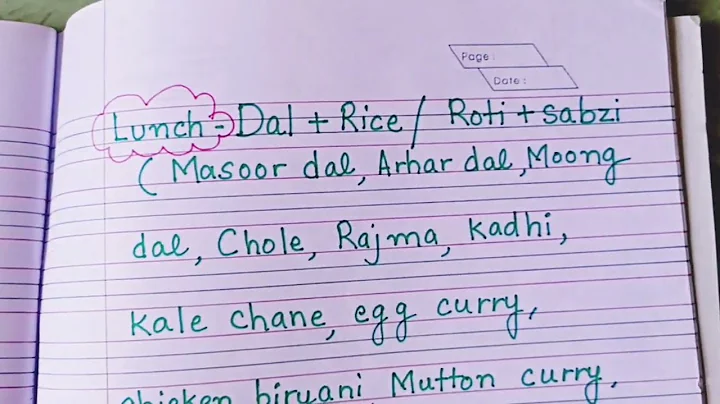 Page :
Date :
Lunch - Dal + Rice / Roti + sabzi
( Masoor dal, Arhar dal, Moong
dal, Chole, Rajma, kadhi,
kale chane, egg curry,
chicken biryani Mutton curry.